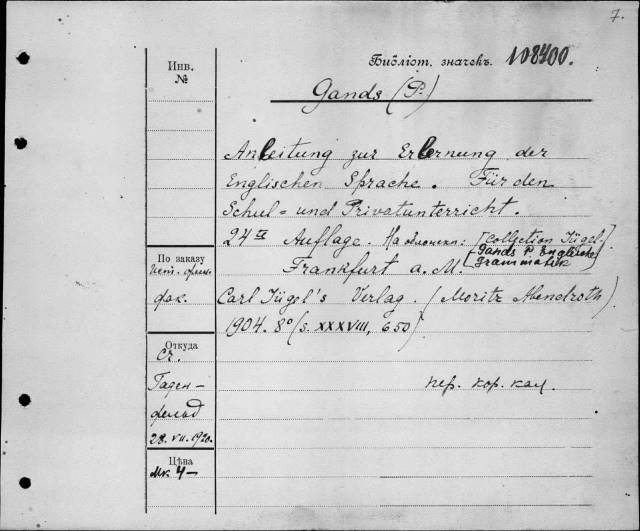 7.
Инв.
№
Библіот. значекъ. 108400.
Gands (P.)
Anleitung zur Erlernung der
Englischen Sprache. Für den
Schul- und Privatunterricht.
24te Auflage. На обложкѣ: [Collection Jügel.
Gands P. Englische
Grammatik]
Frankfurt a. M.
Carl Jügel's Verlag. (Moritz Abendroth)
1904. 8° (s. XXXVIII, 650)
По заказу
ист. фил.
фак.
Откуда
Сч.
Гаген-
фельд
28. VII. 1920.
пер. кор. кал.
Цѣна
Мк 4 —